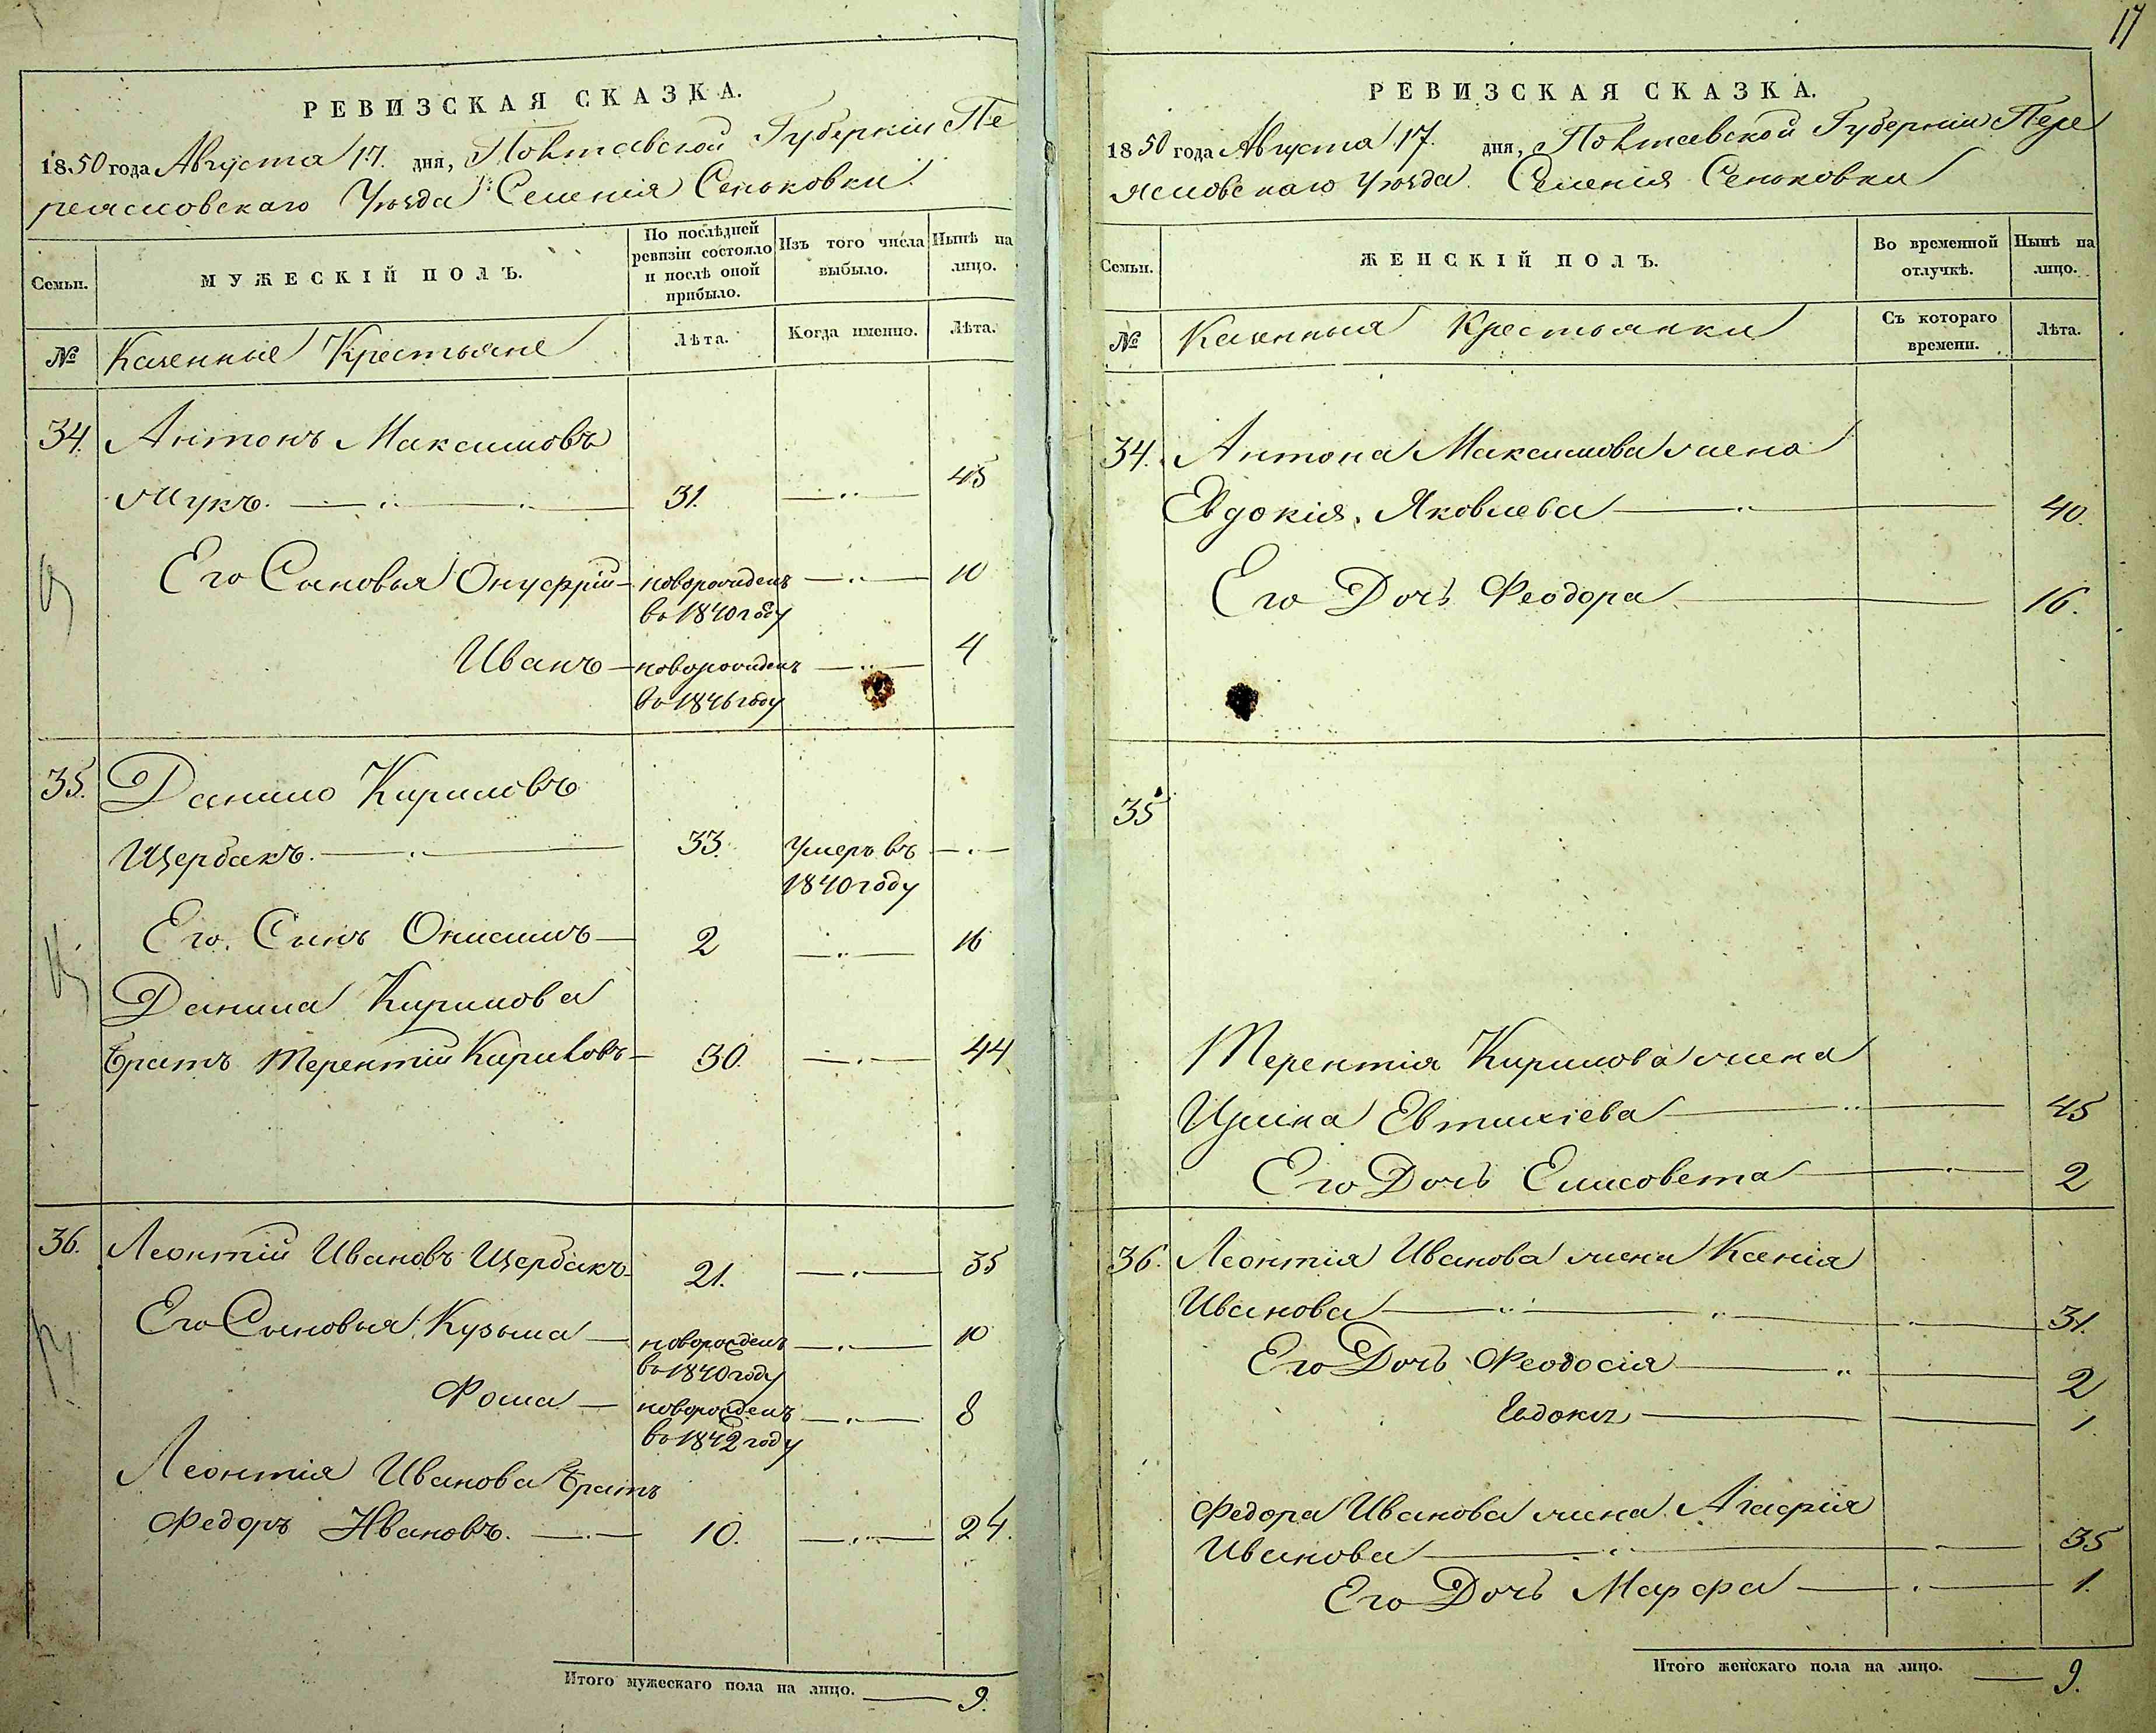 РЕВИЗСКАЯ СКАЗКА.
1850 года Августа 17. дня, Полтавской Губерніи Пе
реясловскаго Уѣзда Селенія Сеньковки.
Семьи.
МУЖЕСКІЙ ПОЛЪ.
По послѣдней ревизіи состояло и послѣ оной прибыло.
Изъ того числа выбыло.
Нынѣ на лицо.
№ Казенные Крестьяне
Лѣта. Когда именно. Лѣта.
34. Антонъ Максимовъ
Мукъ. 31. 45
Его Сыновья Онуфрій новорожденъ 10
въ 1840 году
Иванъ новорожденъ 4
въ 1846 году
35. Данило Кириловъ
Щербакъ. 33. Умеръ въ
1840 году
Его Сынъ Онисимъ 2 16
Данила Кирилова
братъ Терентій Кириловъ 30. 44
36. Леонтій Ивановъ Щербакъ 21. 35
Его Сыновья Кузьма новорожденъ 10
въ 1840 году
Фома новорожденъ 8
въ 1842 году
Леонтія Иванова братъ
Федоръ Ивановъ. 10. 24.
Итого мужескаго пола на лицо. 9.
17
РЕВИЗСКАЯ СКАЗКА.
1850 года Августа 17. дня, Полтавской Губерніи Пере
ясловскаго Уѣзда Селенія Сеньковки
Семьи.
ЖЕНСКІЙ ПОЛЪ.
Во временной отлучкѣ.
Нынѣ на лицо.
№ Казенныя Крестьянки
Съ котораго времени.
Лѣта.
34. Антона Максимова жена
Евдокія Яковлева 40.
Его Дочь Феодора 16.
35
Терентія Кирилова жена
Ирина Евтихіева 45
Его Дочь Елисовета 2
36. Леонтія Иванова жена Ксенія
Иванова 31.
Его Дочь Феодосія 2
Евдокія 1.
Федора Иванова жена Агафія
Иванова 35
Его Дочь Марфа 1.
Итого женскаго пола на лицо. 9.